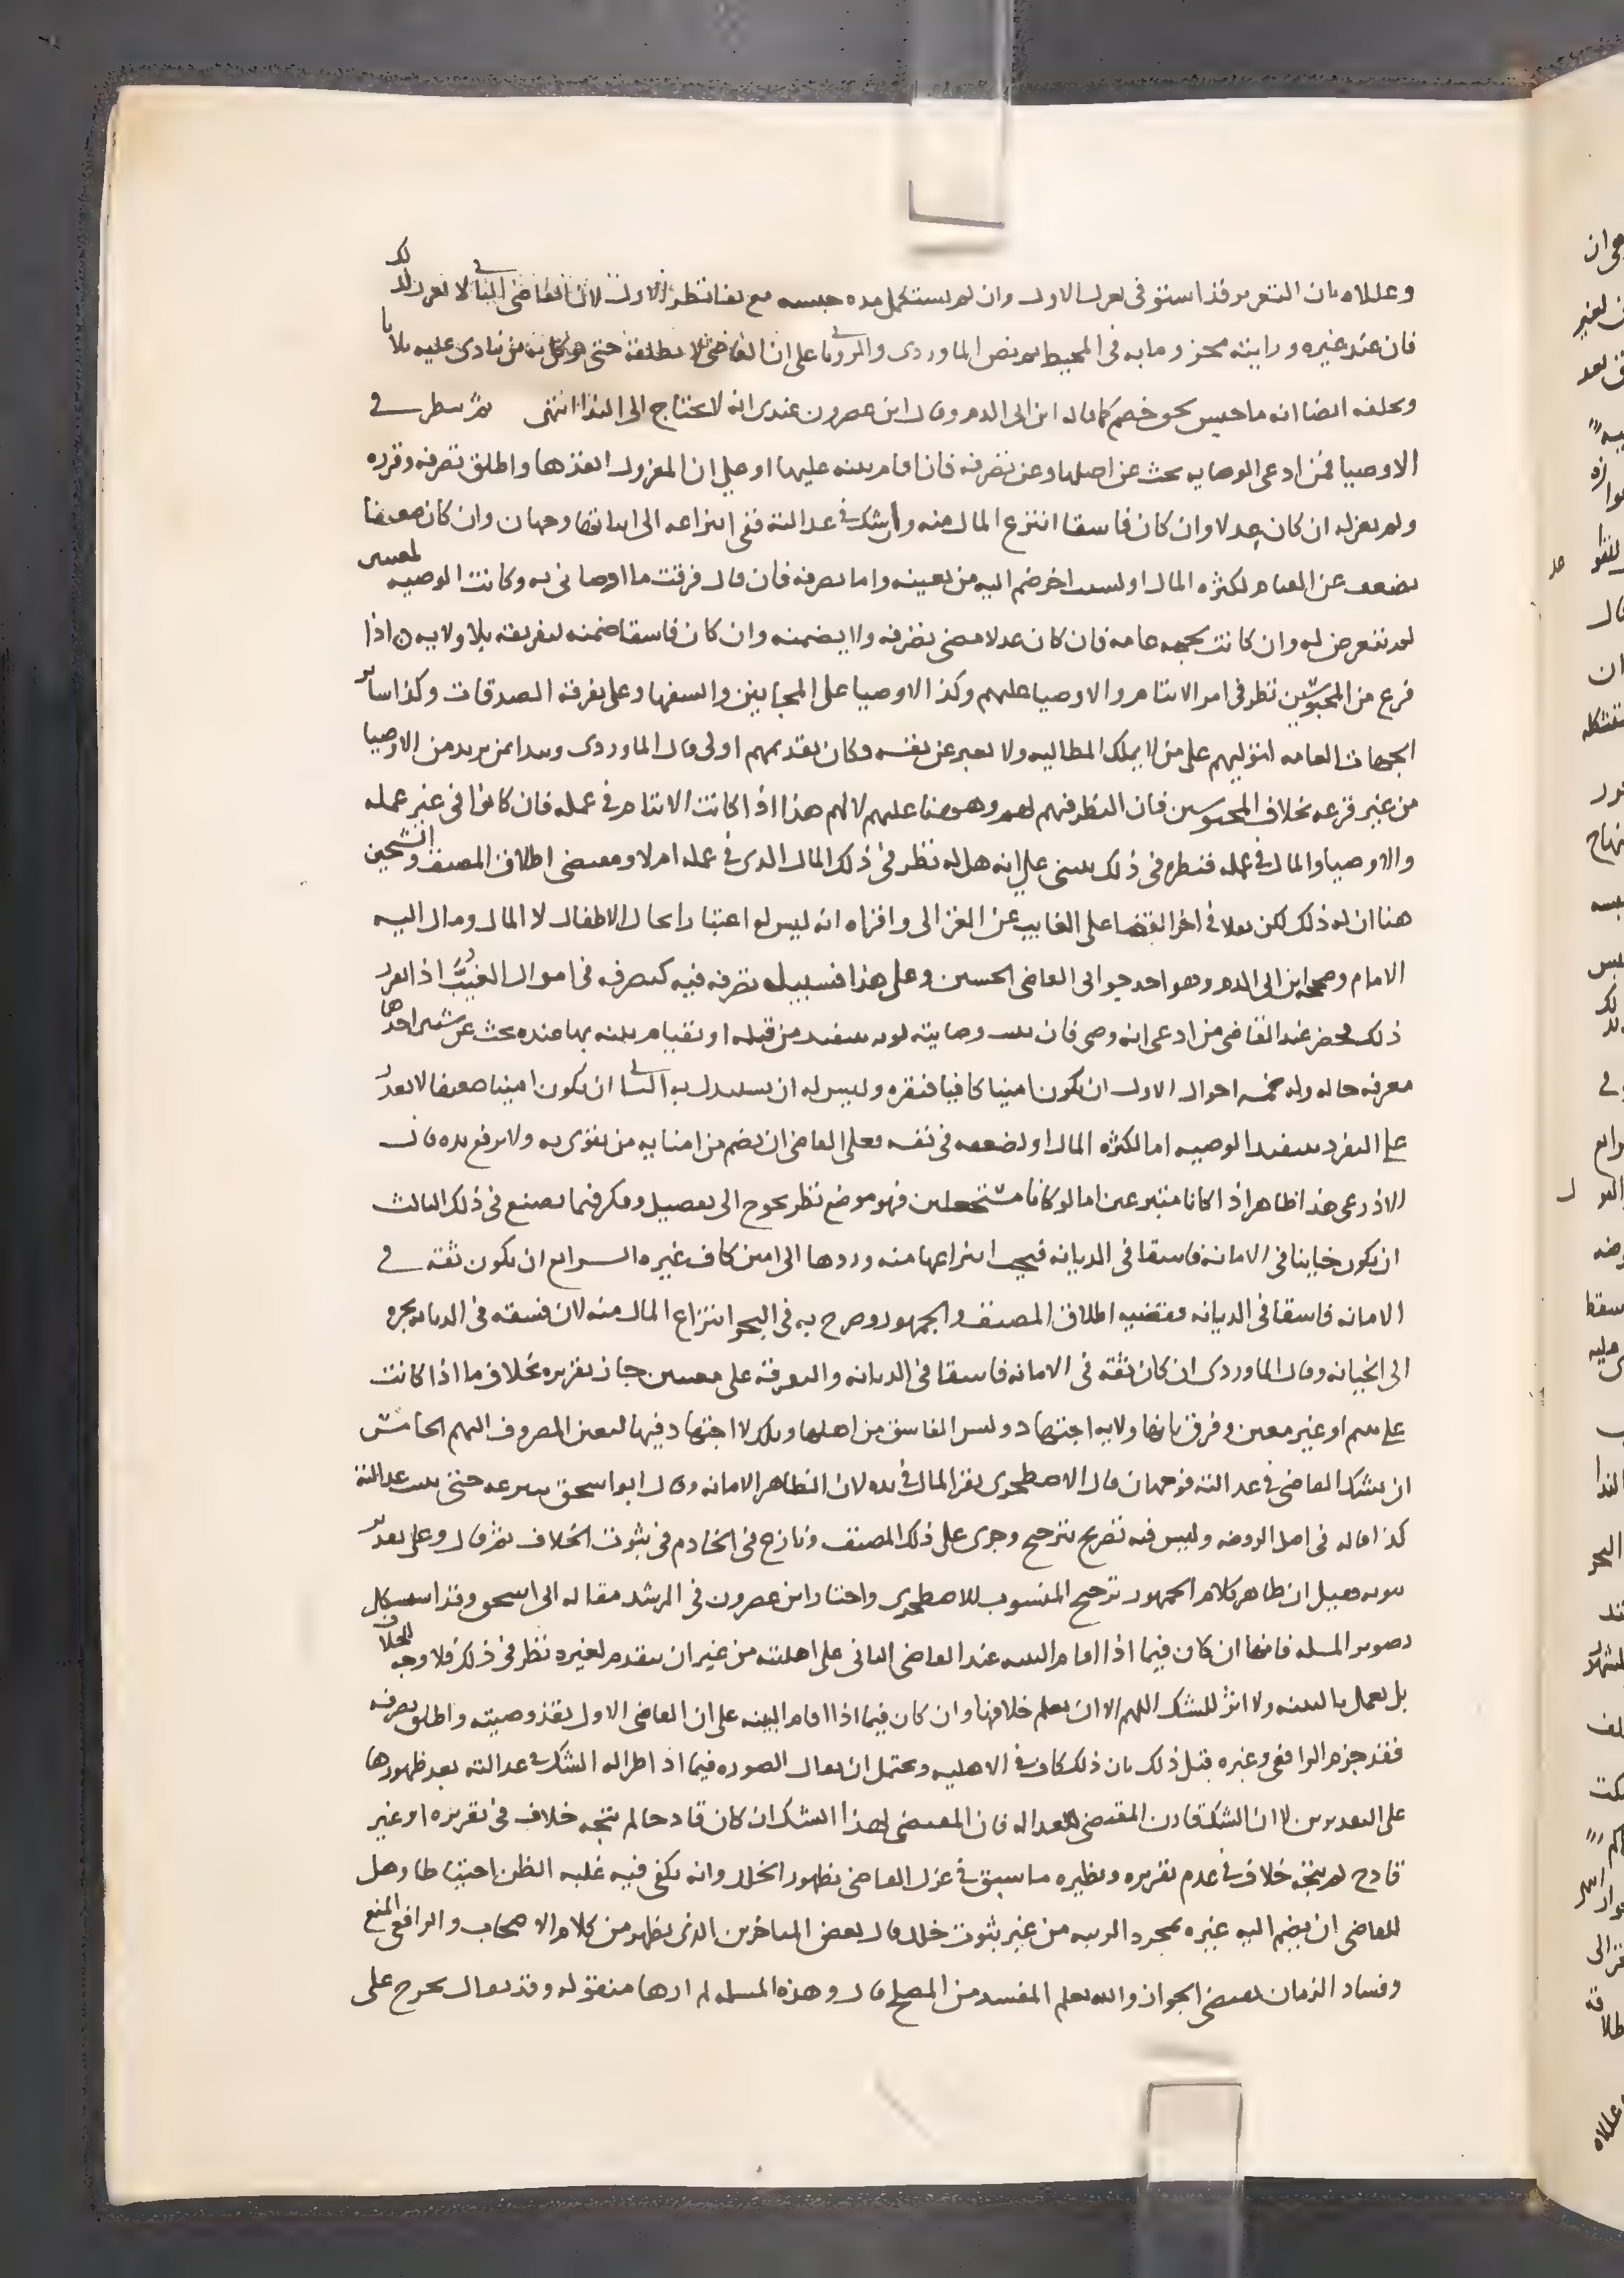 وعللاه بان التعزير قد استوفى بعزل الاول وان لم يستكمل مده حبسه مع بقا نظر الاول لان القاضي الثاني لا يعزر لذلك
فان عند غيره ورايته مجزوما به في المحيط ثم نص الماوردي والروياني على ان القاضي لا يطلقه حتى من ينادي عليه ثلاثا
ويحلفه ايضا انه ما حبس بحق خصم كما قاله ابن ابي الدم وقال ابن عصرون عندي انه لا يحتاج الى الندا انتهى ثم ينظر في
الاوصيا فمن ادعى الوصايه بحث عن اصلها وعن تصرفه فان اقام بينه عليها او على ان المعزول انفذها واطلق تصرفه وقرره
ولم يعزله ان كان عدلا وان كان فاسقا انتزع المال منه وان شك في عدالته ففي انتزاعه الى وجهان وان كان ضعيفا
يضعف عن القيام لكثره المال او لسبب اخر ضم اليه من يعينه واما تصرفه فان قال فرقت ما اوصاني به وكانت الوصيه لمعين
لم نتعرض له وان كانت لجهه عامه فان كان عدلا مضى تصرفه ولا يضمنه وان كان فاسقا ضمنه لتفريقه بلا ولايه ن اذا
فرغ من المحبوسين نظر في امر الايتام والاوصيا عليهم وكذا الاوصيا على المجانين والسفها وعلى تفرقة الصدقات وكذا ساير
الجهات العامه لتوليهم على من لا يملك المطالبه ولا يعبر عن نفسه فكان تقديمهم اولى قال الماوردي ويبدا بمن يريد من الاوصيا
من غير قرعه بخلاف المحبوسين فان النظر فيهم لهم وهو هنا عليهم لا لهم هذا اذا كانت الايتام في عمله فان كانوا في غير عمله
والاوصيا والمال في عمله فنظره في ذلك يبنى على انه هل له نظر في ذلك المال الذي في عمله ام لا ومقتضى اطلاق المصنف والشيخين
هنا ان له ذلك لكن نقلا في اخر القضا على الغايب عن الغزالي واقراه انه ليس له اعتبارا بحال الاطفال لا المال ومال اليه
الامام وصححه ابن ابي الدم وهو احد جوابي القاضي الحسين وعلى هذا فسبيله تصرفه فيه كتصرفه في اموال الغيب اذا تقرر
ذلك فحضر عند القاضي من ادعى انه وصي فان ثبت وصايته لديه بتنفيذ من قبله او بقيام بينه بها عنده بحث عن شيئين احدها
معرفه حاله وله خمسه احوال الاول ان يكون امينا كافيا فنقره وليس له ان يستبدل به الثاني ان يكون امينا ضعيفا لا يقدر
على التفرد بتنفيذ الوصيه اما لكثره المال او لضعفه في نفسه فعلى القاضي ان يضم من امنايه من يقوى به ولا يرفع يده قال
الاذرعي هذا ظاهر اذا كانا متبرعين اما لو كانا مستجعلين فهو موضع نظر يحوج الى تفصيل وفكر فيما يصنع في ذلك الثالث
ان يكون خاينا في الامانه فاسقا في الديانه فيجب انتزاعها منه وردها الى امين كاف غيره الرابع ان يكون ثقه في
الامانه فاسقا في الديانه فقضيه اطلاق المصنف والجمهور وصرح به في البحر انتزاع المال منه لان فسقه في الديانه يجره
الى الخيانه وقال الماوردي ان كان ثقه في الامانه فاسقا في الديانه والتفرقه على معينين جاز تقريره بخلاف ما اذا كانت
على يتيم او غير معين وفرق بانها ولايه اجتهاد وليس الفاسق من اهلها وتلك لا اجتهاد فيها لتعين المصروف اليهم الخامس
ان يشك القاضي في عدالته فوجهان قال الاصطخري يقر المال في يده لان الظاهر الامانه وقال ابو اسحق ينزعه حتى يثبت عدالته
كذا قاله في اصل الروضه وليس فيه تصريح بترجيح وجرى على ذلك المصنف ونازع في الخادم في ثبوت الخلاف ثم قال وعلى تقدير
ثبوته فقيل ان ظاهر كلام الجمهور ترجيح المنسوب للاصطخري واختار ابن عصرون في المرشد مقاله ابي اسحق وقد استشكل
تصوير المسله فانها ان كان فيما اذا اقام البينه عند القاضي الثاني على اهليته من غير ان يتقدم لغيره نظر في ذلك فلا وجه للخلاف
بل يعمل بالبينه ولا اثر للشك اللهم الا ان يعلم خلافها وان كان فيما اذا اقام البينه على ان القاضي الاول نفذ وصيته واطلق تصرفه
فقد جزم الرافعي وغيره قبل ذلك بان ذلك كاف في الاهليه ويحتمل ان يقال الصوره فيما اذا طرا له الشك في عدالته بعد ظهورها
على التقديرين لا ان الشك قارن المقتضي للعداله فان المقتضى لهذا الشك ان كان قادحا لم يتجه خلاف في تقريره او غير
قادح لم يتجه خلاف في عدم تقريره ونظيره ما سبق في عزل القاضي بظهور الخلل وانه يكفى فيه غلبه الظن احتياطا وهل
للقاضي ان يضم اليه غيره بمجرد الريبه من غير ثبوت خلل قال بعض المتاخرين الذي يظهر من كلام الاصحاب والرافعي المنع
وفساد الزمان يقتضي الجواز والله يعلم المفسد من المصلح قال وهذه المسله لم ارها منقوله وقد يقال يخرج على